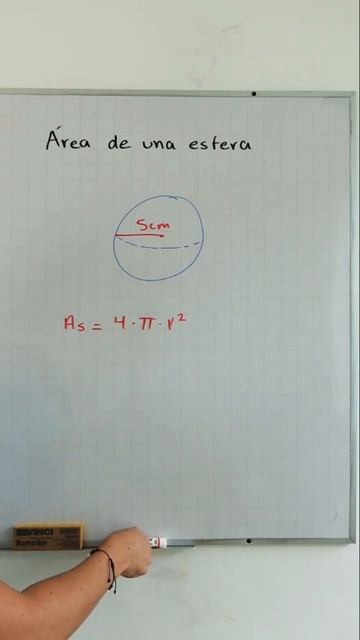 Área de una esfera
5cm
As = 4 · π · r²
Borrador